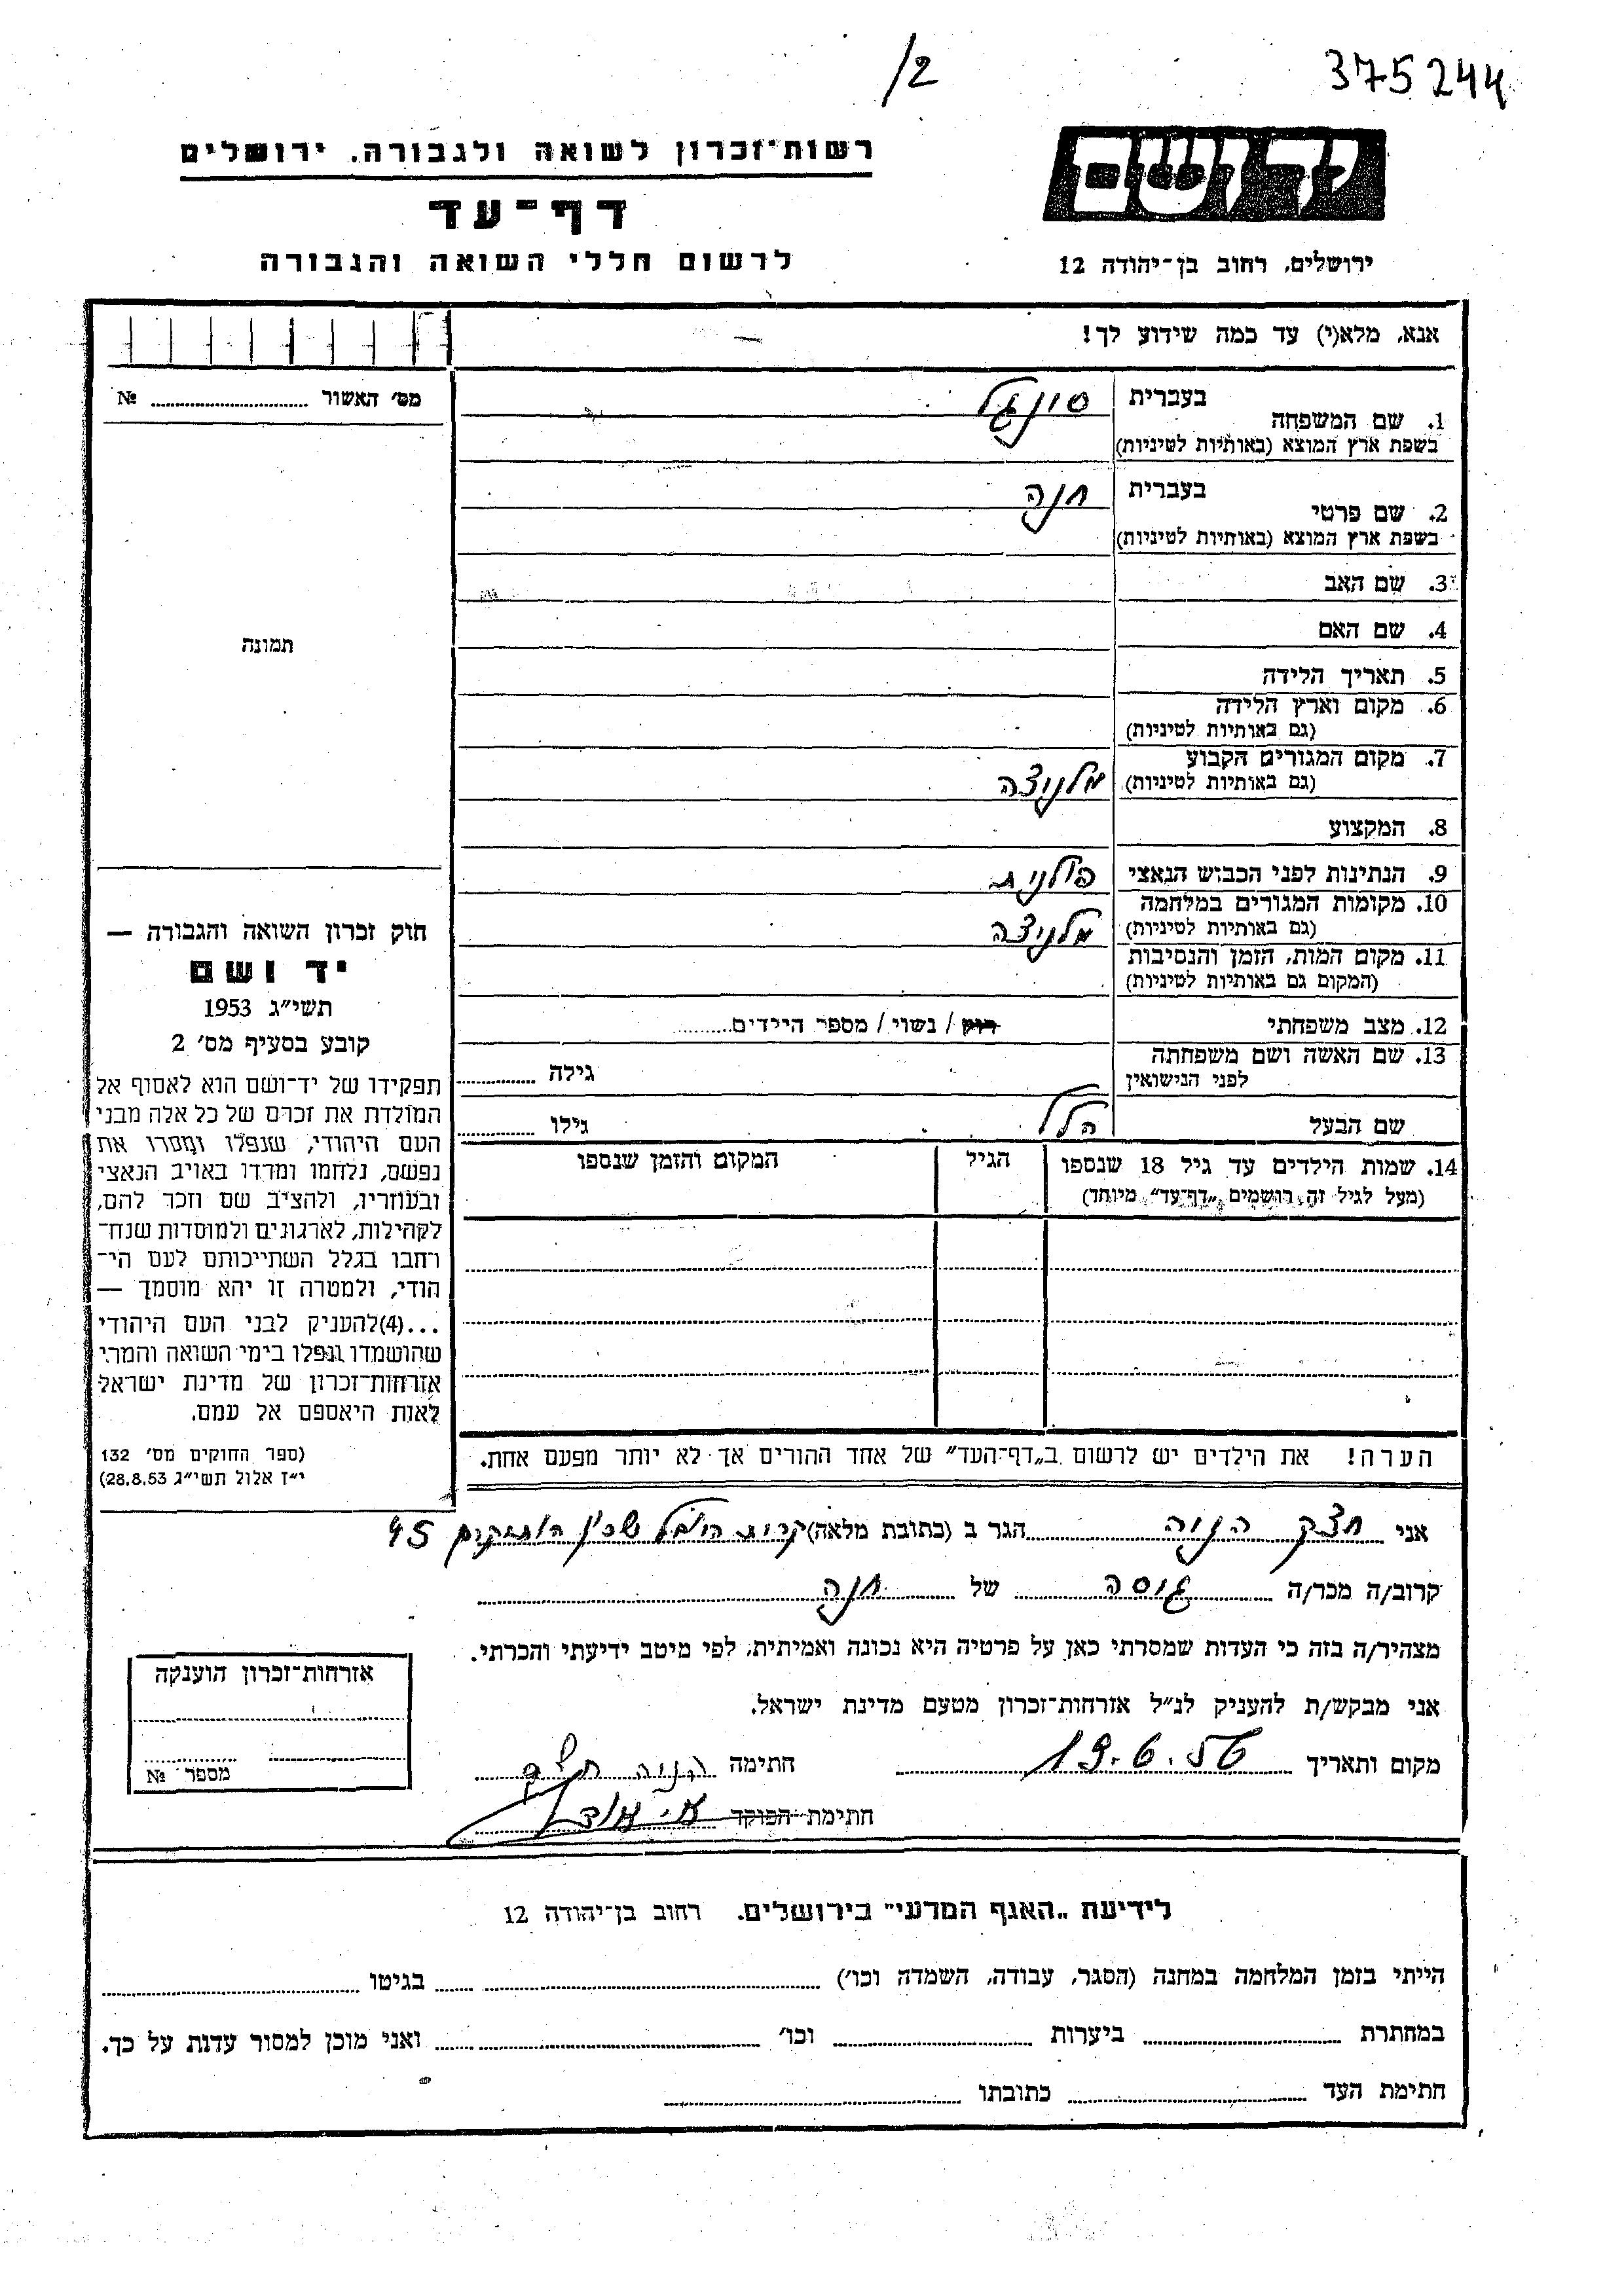 /2
375244
רשות־זכרון לשואה ולגבורה, ירושלים
יד ושם
דף־עד
לרשום חללי השואה והגבורה
ירושלים, רחוב בן־יהודה 12
אנא, מלא(י) עד כמה שידוע לך!
מס׳ האשור № 
1. שם המשפחה
בעברית סונגל
בשפת ארץ המוצא (באותיות לטיניות)
2. שם פרטי
בעברית חנה
בשפת ארץ המוצא (באותיות לטיניות)
3. שם האב
4. שם האם
תמונה
5. תאריך הלידה
6. מקום וארץ הלידה
(גם באותיות לטיניות)
7. מקום המגורים הקבוע
(גם באותיות לטיניות) מלניצה
8. המקצוע
9. הנתינות לפני הכבוש הנאצי פולנית
10. מקומות המגורים במלחמה
(גם באותיות לטיניות) מלניצה
11. מקום המות, הזמן והנסיבות
(המקום גם באותיות לטיניות)
12. מצב משפחתי רווק / נשוי / מספר הילדים
13. שם האשה ושם משפחתה
לפני הנישואין גילה
שם הבעל הלל גילו
14. שמות הילדים עד גיל 18 שנספו הגיל המקום והזמן שנספו
(מעל לגיל זה רושמים „דף־עד״ מיוחד)
חוק זכרון השואה והגבורה —
יד ושם
תשי״ג 1953
קובע בסעיף מס׳ 2
תפקידו של יד־ושם הוא לאסוף אל
המולדת את זכרם של כל אלה מבני
העם היהודי, שנפלו ומסרו את
נפשם, נלחמו ומרדו באויב הנאצי
ובעוזריו, ולהציב שם וזכר להם,
לקהילות, לארגונים ולמוסדות שנח־
רחבו בגלל השתייכותם לעם הי־
הודי, ולמטרה זו יהא מוסמך —
...(4)להעניק לבני העם היהודי
שהושמדו ונפלו בימי השואה והמרי
אזרחות־זכרון של מדינת ישראל
לאות היאספם אל עמם.
(ספר החוקים מס׳ 132
י״ז אלול תשי״ג 28.8.53)
הערה! את הילדים יש לרשום ב„דף־העד״ של אחד ההורים אך לא יותר מפעם אחת.
אני חצק הניה הגר ב (כתובת מלאה) קרית היובל שכון הותיקים 45
קרוב/ה מכר/ה גיסה של חנה
מצהיר/ה בזה כי העדות שמסרתי כאן על פרטיה היא נכונה ואמיתית, לפי מיטב ידיעתי והכרתי.
אני מבקש/ת להעניק לנ״ל אזרחות־זכרון מטעם מדינת ישראל.
מקום ותאריך 19.6.56 חתימה הניה חצק
חתימת הפוקד
אזרחות־זכרון הוענקה
מספר №
לידיעת „האגף המדעי״ בירושלים, רחוב בן־יהודה 12
הייתי בזמן המלחמה במחנה (הסגר, עבודה, השמדה וכו׳) בגיטו
במחתרת ביערות וכו׳ ואני מוכן למסור עדות על כך.
חתימת העד כתובתו